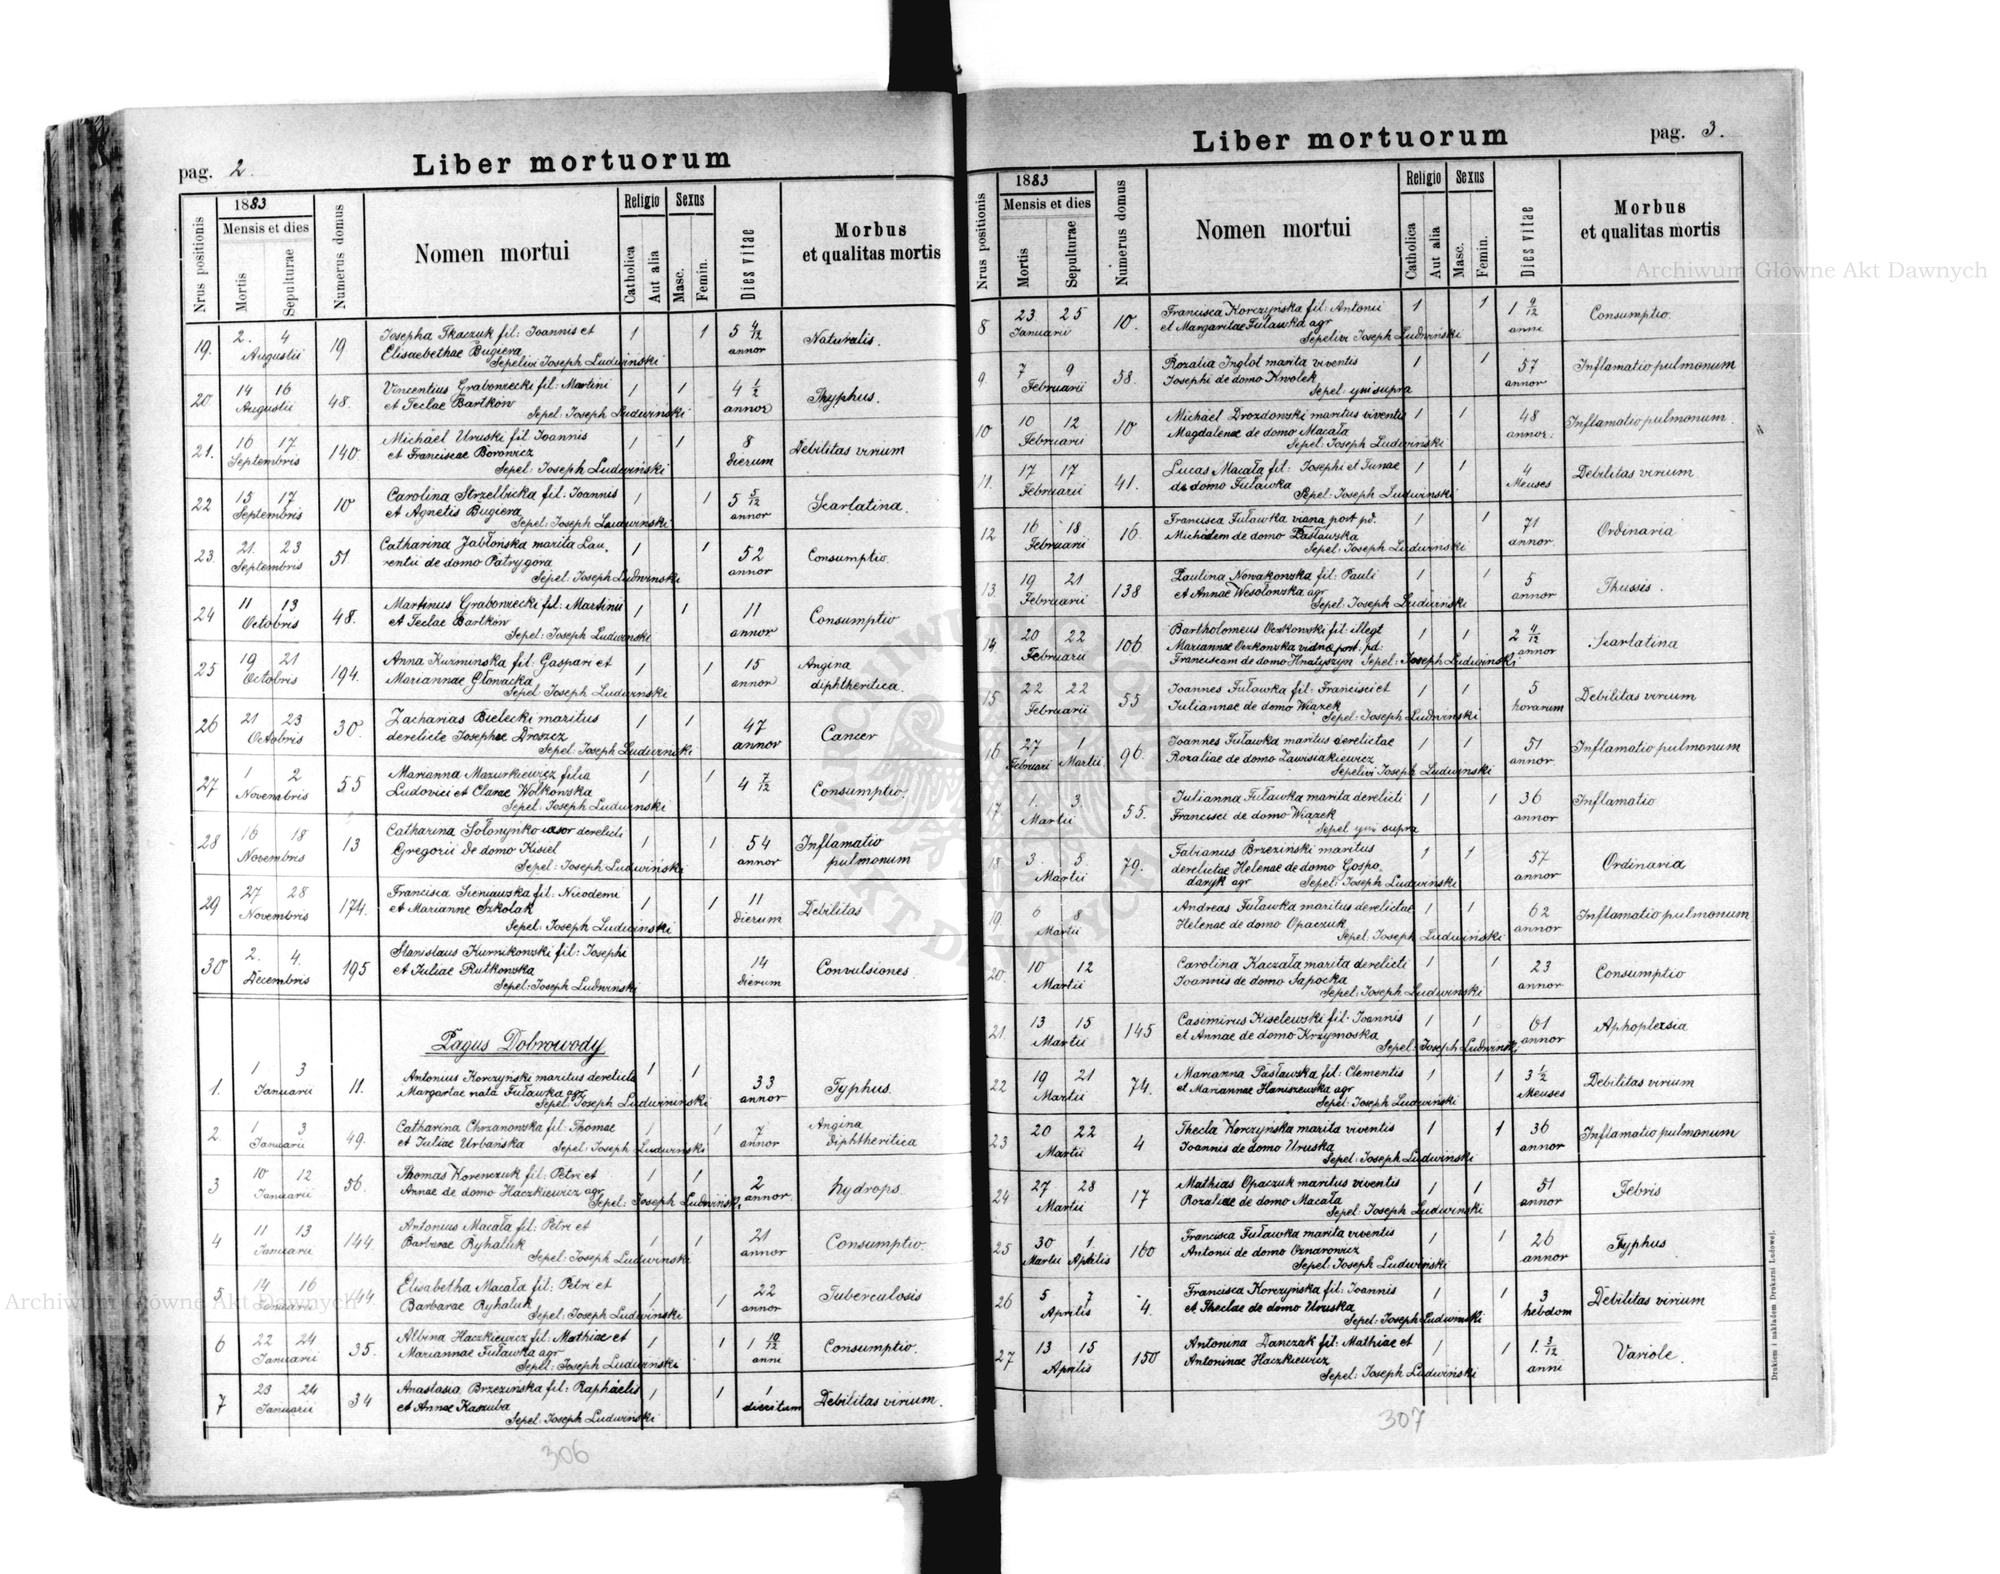 pag. 2.
Liber mortuorum
Nrus positionis
1883
Mensis et dies
Mortis
Sepulturae
Numerus domus
Nomen mortui
Religio
Catholica
Aut alia
Sexus
Masc.
Femin.
Dies vitae
Morbus
et qualitas mortis
19. 2. 4 Augustii 19 Josepha Tkaczuk fil: Joannis et 1 1 5 4/12 annor Naturalis.
Elisaebethae Bugiera
Sepelivi Joseph Ludwiński
20 14 16 Augustii 48. Vincentius Graboniecki fil: Martini 1 1 4 1/2 annor Thyphus.
et Teclae Bartkow
Sepel: Joseph Ludwiński
21. 16 17 Septembris 140. Michäel Uruski fil Joannis 1 1 8 dierum Debilitas virium
et Franciscae Borowicz
Sepel: Joseph Ludwiński
22 15 17 Septembris 10 Carolina Strzelbicka fil: Joannis 1 1 5 5/12 annor Scarlatina.
et Agnetis Bugiera
Sepel: Joseph Ludwiński
23. 21. 23 Septembris 51 Catharina Jabłońska marita Lau, 1 1 52 annor Consumptio
rentii de domo Patrygora
Sepel: Joseph Ludwinski
24 11 13 Octobris 48. Martinus Graboniecki fil: Martini 1 1 11 annor Consumptio
et Teclae Bartkow
Sepel: Joseph Ludwinski
25 19 21 Octobris 194. Anna Kuzminska fil: Gaspari et 1 1 15 annor Angina
Mariannae Głowacka diphtheritica.
Sepel Joseph Ludwiński
26 21 23 Octobris 30. Zacharias Bielecki maritus 1 1 47 annor Cancer
derelicte Josephae Droszcz
Sepel: Joseph Ludwinski
27 1 2 Novembris 55 Marianna Mazurkiewicz filia 1 1 4 7/12 Consumptio.
Ludovici et Clarae Wołkowska
Sepel: Joseph Ludwinski
28 16 18 Novembris 13 Catharina Sołonyńko uxor derelicti 1 1 54 annor Inflamatio
Gregorii de domo Kisiel pulmonum
Sepel: Joseph Ludwiński
29 27 28 Novembris 174. Francisca Sieniawska fil: Nicodemi 1 1 11 dierum Debilitas
et Marianne Szkolak
Sepel: Joseph Ludwiński
30 2. 4. Decembris 195 Stanislaus Kurnikowski fil: Josephi 14 dierum Convulsiones.
et Juliae Rutkowska
Sepel: Joseph Ludwiński
Pagus Dobrowody
1. 1 3 Januarii 11. Antonius Korczyński maritus derelicta 1 1 33 annor Typhus.
Margartae nata Fuławka agr
Sepel: Joseph Ludwininski
2. 1 3 Januarii 49. Catharina Chrzanowska fil: Thomae 1 1 7 annor Angina
et Juliae Urbańska Sepel: Joseph Ludwiński Diphtheritica
3 10 12 Januarii 56. Thomas Korenczuk fil: Petri et 1 1 2 annor. hydrops.
Annae de domo Haczkiewicz agr
Sepel: Joseph Ludwińsk.
4 11 13 Januarii 144. Antonius Macała fil: Petri et 1 1 21 annor Consumptio.
Barbarae Ryhaluk
Sepel: Joseph Ludwiński
5 14 16 Januarii 144 Elisabetha Macała fil: Petri et 1 1 22 annor Tuberculosis
Barbarae Ryhaluk
Sepel: Joseph Ludwiński
6 22 24 Januarii 35. Albina Haczkiewicz fil: Mathiae et 1 1 1 10/12 anni Consumptio.
Mariannae Fuławka agr
Sepel: Joseph Ludwiński
7 23 24 Januarii 34 Anastasia Brzezińska fil: Raphäelis 1 1 1 Debilitas virium.
et Annae Kaszuba
Sepel: Joseph Ludwiński
306
Liber mortuorum
pag. 3.
Nrus positionis
1883
Mensis et dies
Mortis
Sepulturae
Numerus domus
Nomen mortui
Religio
Catholica
Aut alia
Sexus
Masc.
Femin.
Dies vitae
Morbus
et qualitas mortis
8 23 25 Januarii 10. Francisca Korczyńska fil: Antonii 1 1 1 9/12 anni Consumptio.
et Margaritae Fuławka agr
Sepelivi Joseph Ludwiński
9. 7 9 Februarii 58. Rozalia Inglot marita viventis 1 1 57 annor Inflamatio pulmonum
Josephi de domo Kwolek
Sepel: qui supra
10 10 12 Februarii 10 Michäel Drozdowski maritus viventis 1 1 48 annor. Inflamatio pulmonum.
Magdalenae de domo Macała
Sepel: Joseph Ludwiński
11. 17 17 Februarii 41. Lucas Macała fil: Josephi et 1 1 4 Menses Debilitas virium
de domo Fuławka
Sepel: Joseph Ludwiński
12 16 18 Februarii 16 Francisca Fuławka post pd. 1 1 71 annor Ordinaria
Michäelem de domo Pasławska
Sepel: Joseph Ludwiński
13. 19 21 Februarii 138 Paulina Nowakowska fil: Pauli 1 1 5 annor Thussis.
et Annae Wesołowska agr
Sepel: Joseph Ludwiński
14. 20 22 Februarii 106 Bartholomeus Oczkowski fil: illegt 1 1 2 4/12 annor Scarlatina
Mariannae Oczkowska vidna post: pd:
Franciscam de domo Hnatyszyn Sepel: Joseph Ludwinski
15 22 22 Februarii 55 Joannes Fuławka fil: Francisci et 1 1 5 horarum Debilitas virium
Juliannae de domo Wiązek
Sepel: Joseph Ludwiński
16 27 1 Februari Martii 96. Joannes Fuławka maritus derelictae 1 1 51 annor. Inflamatio pulmonum
Rozaliae de domo Zawisiakiewicz
Sepelivi Joseph Ludwiński
17 1. 3. Martii 55. Julianna Fuławka marita derelicti 1 1 36 annor Inflamatio
Francisci de domo Wiązek
Sepel qui supra
18 3. 5. Martii 79. Fabianus Brzezinski maritus 1 1 57 annor Ordinaria
derelictae Helenae de domo Gospo„
daryk agr Sepel: Joseph Ludwiński
19. 6 8 Martii Andreas Fuławka maritus derelictae 1 1 62 annor Inflamatio pulmonum
Helenae de domo Opaczuk
Sepel: Joseph Ludwiński
20. 10 12 Martii Carolina Kaczała marita derelicti 1 1 23 annor Consumptio
Joannis de domo Sapocka
Sepel: Joseph Ludwiński
21. 13 15 Martii 145 Casimirus Kiselewski fil: Joannis 1 1 61 annor Aphoplexia
et Annae de domo Krzymoska
Sepel: Joseph Ludwiński
22 19 21 Martii 74. Marianna Pasławska fil: Clementis 1 1 3 1/2 Menses Debilitas virium
et Mariannae Haniszewska agr
Sepel: Joseph Ludwiński
23 20 22 Martii 4 Thecla Korczyńska marita viventis 1 1 36 annor Inflamatio pulmonum
Joannis de domo Uruska
Sepel: Joseph Ludwiński
24 27 28 Martii 17 Mathias Opaczuk maritus viventis 1 1 51 annor Febris
Rozaliae de domo Macała
Sepel: Joseph Ludwiński
25 30 1. Martii Aprilis 160 Francisca Fuławka marita viventis 1 1 26 annor Typhus
Antonii de domo Oznarowicz
Sepel: Joseph Ludwiński
26 5 7 Aprilis 4. Francisca Korczyńska fil: Joannis 1 1 3 hebdom Debilitas virium
et Theclae de domo Uruska
Sepel: Joseph Ludwiński
27 13 15 Aprilis 150 Antonina Danczak fil: Mathiae et 1 1 1. 3/12 anni Variole.
Antoninae Haczkiewicz
Sepel: Joseph Ludwiński
307
Drukiem i nakładem Drukarni Ludowej.
Archiwum Główne Akt Dawnych
Archiwum Główne Akt Dawnych
ARCHIWUM GŁÓWNE AKT DAWNYCH